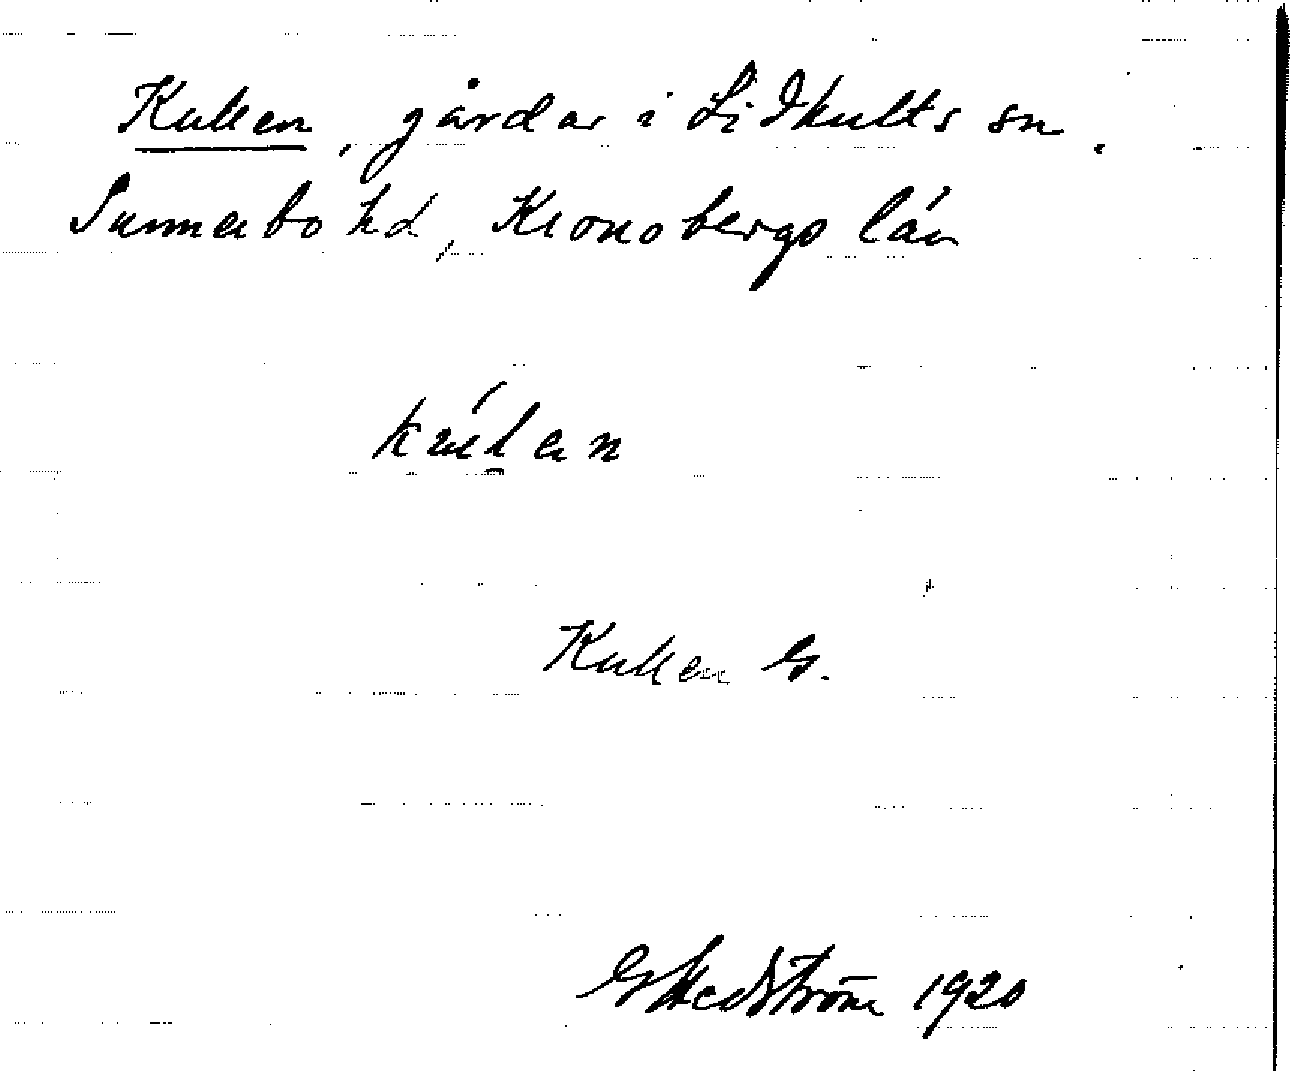 Kullen, gårdar i Lidhults sn,
Sunnerbo hd, Kronobergs län
Kullen G.
G Hedström 1920